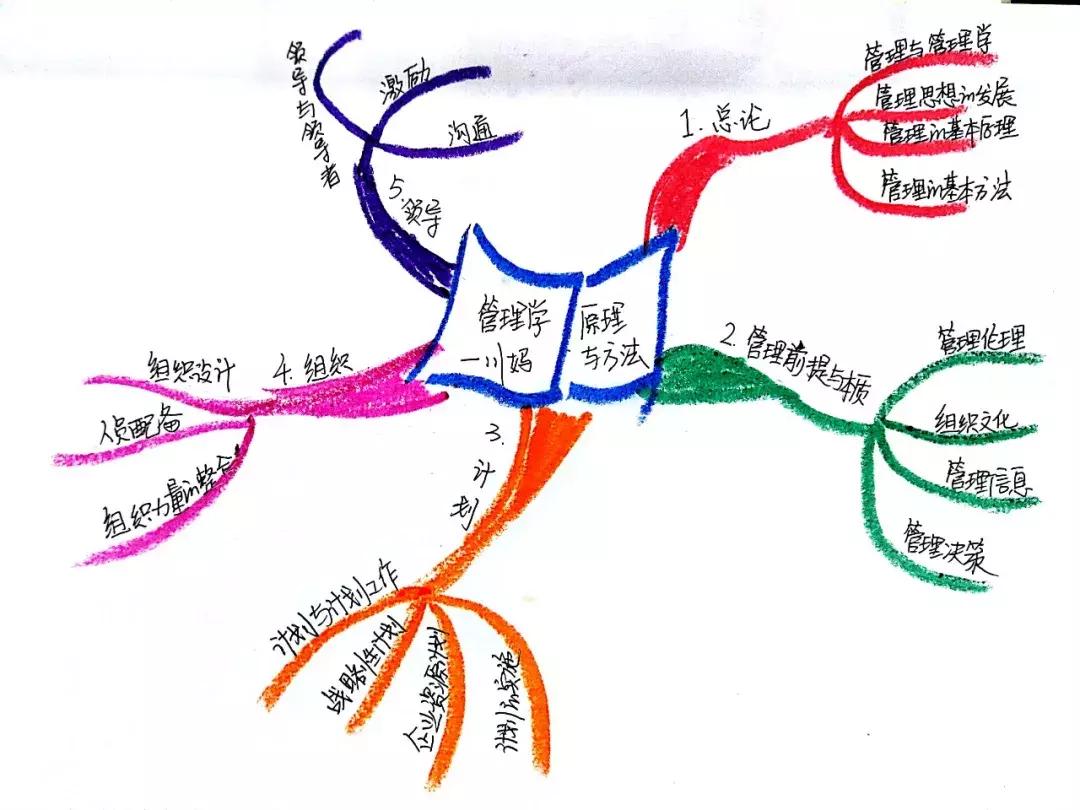 管理学
一川妈
原理
与方法
1. 总论
管理与管理学
管理思想的发展
管理的基本原理
管理的基本方法
2. 管理前提与本质
管理伦理
组织文化
管理信息
管理决策
3. 计划
计划与计划工作
战略性计划
企业资源计划
计划的实施
4. 组织
组织设计
人员配备
组织力量的整合
5. 领导
领导与领导者
激励
沟通